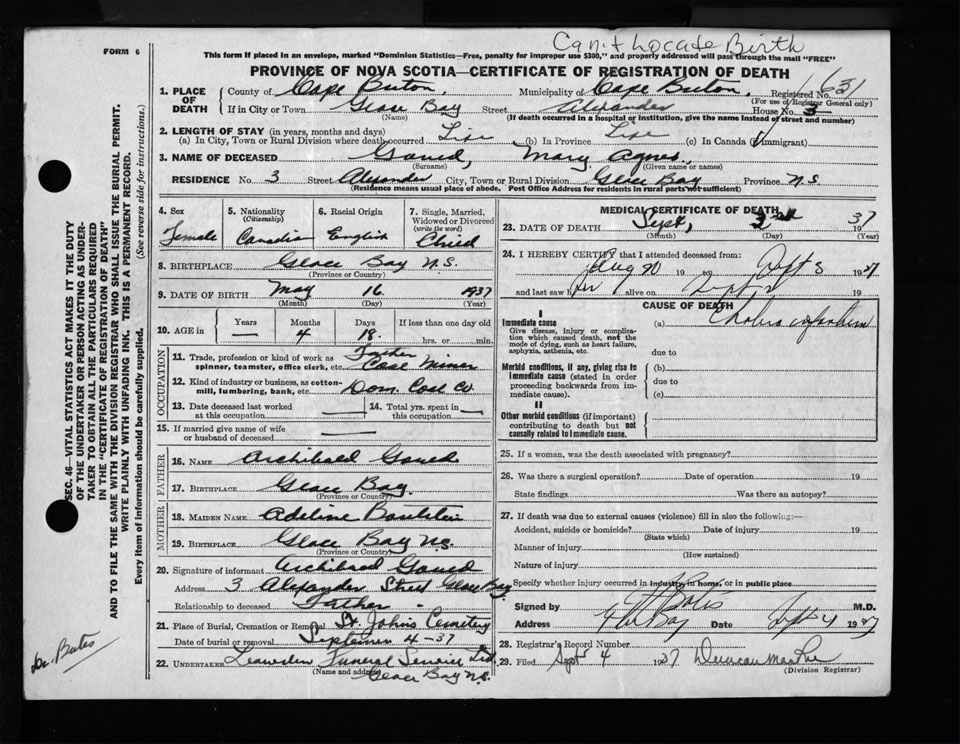 Can't Locate Birth
FORM 6
This form if placed in an envelope, marked "Dominion Statistics—Free, penalty for improper use $300," and properly addressed will pass through the mail "FREE"
PROVINCE OF NOVA SCOTIA—CERTIFICATE OF REGISTRATION OF DEATH
1. PLACE OF DEATH
County of Cape Breton, Municipality of Cape Breton, Registered No. 631
(For use of Registrar General only)
If in City or Town Glace Bay Street Alexander House No. 3
(Name) (If death occurred in a hospital or institution, give the name instead of street and number)
2. LENGTH OF STAY (in years, months and days)
(a) In City, Town or Rural Division where death occurred Life (b) In Province Life (c) In Canada (if immigrant)
3. NAME OF DECEASED Mary Agnes
(Surname) (Given name or names)
RESIDENCE No. 3 Street Alexander City, Town or Rural Division Glace Bay Province N.S
(Residence means usual place of abode. Post Office Address for residents in rural parts not sufficient)
4. Sex
Female
5. Nationality (Citizenship)
Canadian
6. Racial Origin
English
7. Single, Married, Widowed or Divorced (write the word)
Child
8. BIRTHPLACE Glace Bay N.S.
(Province or Country)
9. DATE OF BIRTH May 16 1937
(Month) (Day) (Year)
10. AGE in Years — Months 4 Days 18. If less than one day old hrs. or min.
OCCUPATION
11. Trade, profession or kind of work as spinner, teamster, office clerk, etc. Father Coal Miner
12. Kind of industry or business, as cotton-mill, lumbering, bank, etc. Dom. Coal Co.
13. Date deceased last worked at this occupation —
14. Total yrs. spent in this occupation —
15. If married give name of wife or husband of deceased —
FATHER
16. NAME Archibald
17. BIRTHPLACE Glace Bay.
(Province or Country)
MOTHER
18. MAIDEN NAME Adeline
19. BIRTHPLACE Glace Bay N.S.
(Province or Country)
20. Signature of informant Archibald
Address 3 Alexander Street Glace Bay
Relationship to deceased Father
21. Place of Burial, Cremation or Removal St. John's Cemetery
Date of burial or removal September 4-37
22. UNDERTAKER Funeral Service Ltd
(Name and address) Glace Bay N.S.
MEDICAL CERTIFICATE OF DEATH
23. DATE OF DEATH Sept, 3rd 1937
(Month) (Day) (Year)
24. I HEREBY CERTIFY that I attended deceased from:
Aug 90 19 to Sept 3 1937
and last saw her alive on Sept 19
CAUSE OF DEATH
I
Immediate cause
Give disease, injury or complication which caused death, not the mode of dying, such as heart failure, asphyxia, asthenia, etc.
(a) Cholera infantum
due to
Morbid conditions, if any, giving rise to immediate cause (stated in order proceeding backwards from immediate cause).
(b)
due to
(c)
II
Other morbid conditions (if important) contributing to death but not causally related to immediate cause.
25. If a woman, was the death associated with pregnancy?
26. Was there a surgical operation? Date of operation 19
State findings Was there an autopsy?
27. If death was due to external causes (violence) fill in also the following:—
Accident, suicide or homicide? Date of injury 19
(State which)
Manner of injury
(How sustained)
Nature of injury
Specify whether injury occurred in industry, in home, or in public place
Signed by Bates M.D.
Address Gl Bay Date Sept 4 1937
28. Registrar's Record Number
29. Filed Sept 4 1937 Duncan MacRae
(Division Registrar)
SEC. 46—VITAL STATISTICS ACT MAKES IT THE DUTY
OF THE UNDERTAKER OR PERSON ACTING AS UNDER-
TAKER TO OBTAIN ALL THE PARTICULARS REQUIRED
IN THE "CERTIFICATE OF DEATH"
AND TO FILE THE SAME WITH THE DIVISION REGISTRAR WHO SHALL ISSUE THE BURIAL PERMIT.
WRITE PLAINLY WITH UNFADING INK. THIS IS A PERMANENT RECORD.
Every item of information should be carefully supplied. (See reverse side for instructions.)
Dr. Bates